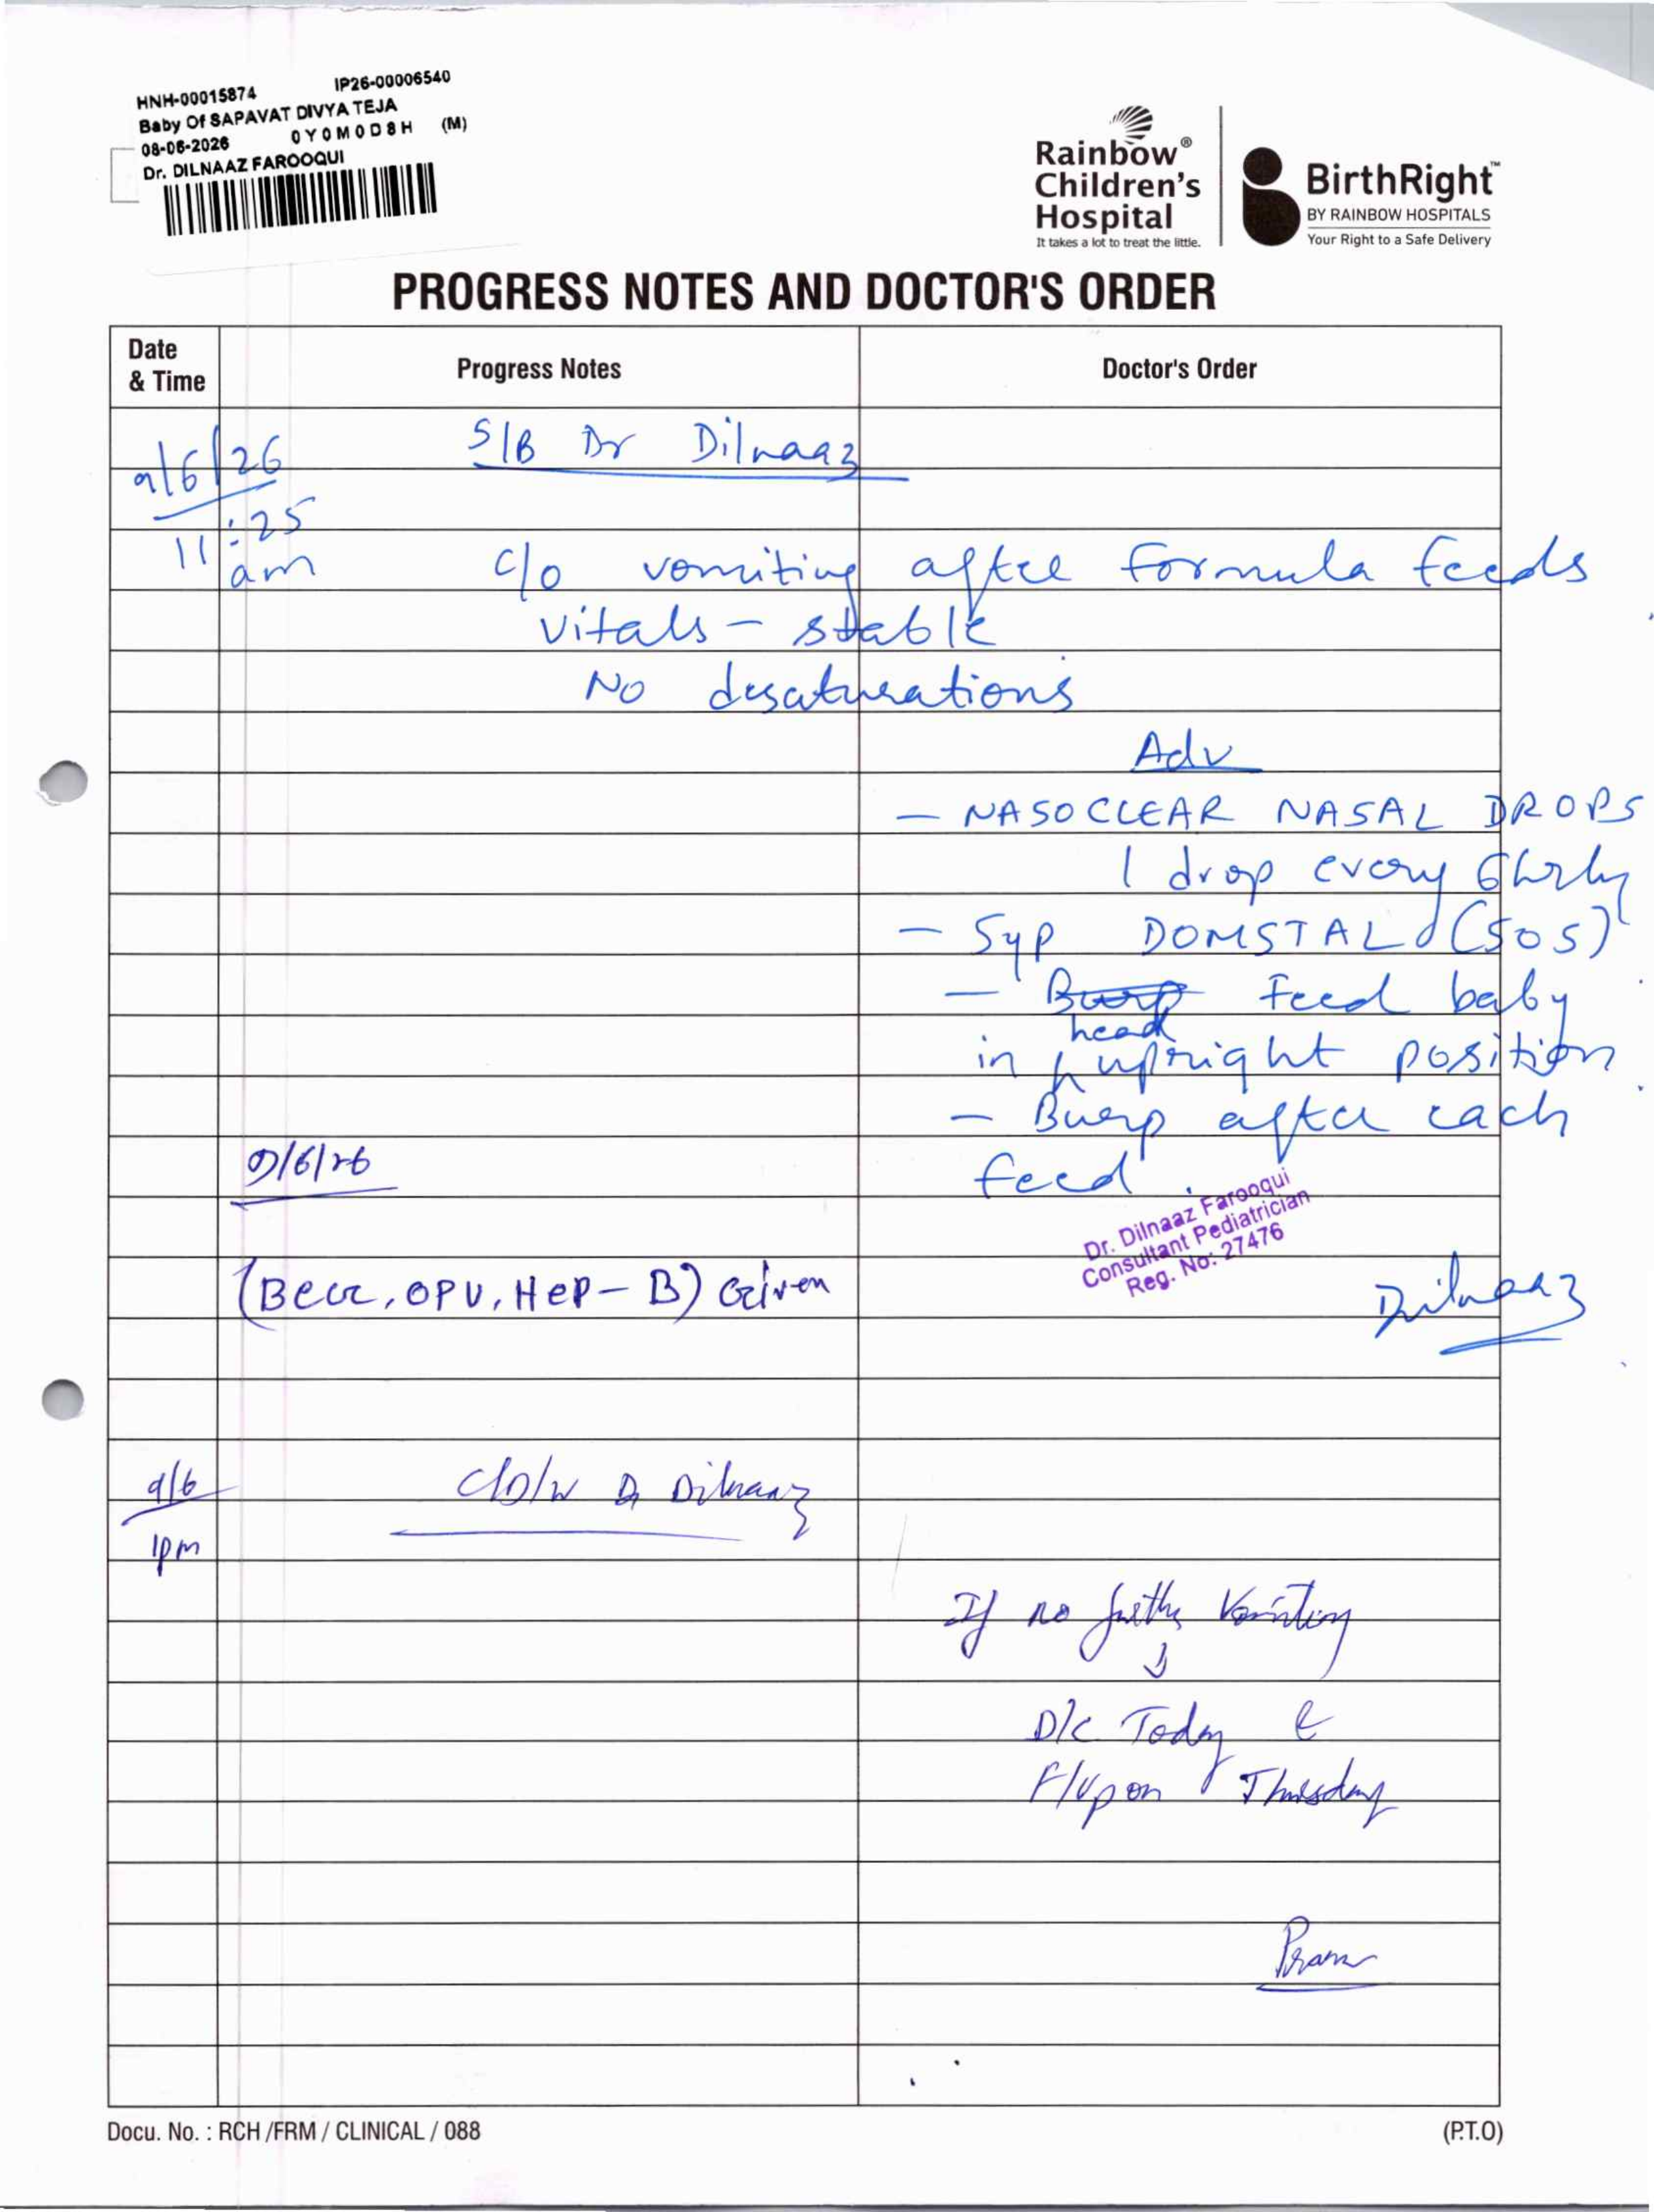 HNH-00015874 IP26-00006540
Baby Of SAPAVAT DIVYA TEJA
08-06-2026 0Y0M0D8H (M)
Dr. DILNAAZ FAROOQUI
Rainbow®
Children's
Hospital
It takes a lot to treat the little.
BirthRight™
BY RAINBOW HOSPITALS
Your Right to a Safe Delivery
PROGRESS NOTES AND DOCTOR'S ORDER
Date & Time Progress Notes Doctor's Order
9/6/26 S/B Dr Dilnaaz
11:25 am
c/o vomiting after formula feeds
vitals - stable
No desaturations
Adv
- NASOCLEAR NASAL DROPS
1 drop every 6hrly
- Syp DOMSTAL (SOS)
- Burp Feed baby
in head upright position.
- Burp after each
feed.
9/6/26
Dr. Dilnaaz Farooqui
Consultant Pediatrician
Reg. No: 27476
(BCG, OPV, Hep-B) Given
Dilnaaz
9/6 C/D/W Dr Dilnaaz
1pm
If no further Vomiting
↓
D/C Today &
F/Up on Thursday
Docu. No. : RCH /FRM / CLINICAL / 088 (P.T.O)